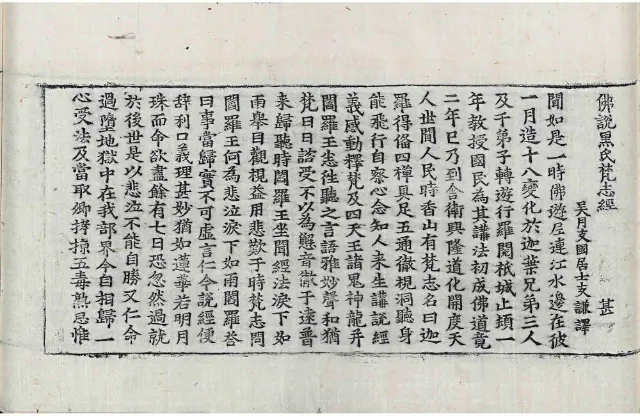 佛說黑氏梵志經 甚
吳月支國居士支謙譯
聞如是一時佛遊尼連江水邊在彼
一月造十八變化於迦葉兄弟三人
及千弟子轉遊行羅閱祇城止頓一
年教授國民為其講法初成佛道竟
二年已乃到舍衛興隆道化開度天
人世間人民時香山有梵志名曰迦
羅得俻四禪具足五通徹視洞聽身
能飛行自察心念知人来生講說經
義感動釋梵及四天王諸鬼神龍并
閻羅王悉往聽之言語雅妙聲和猶
梵日日諮受不以為懈音徹于遠普
来歸聽時閻羅王坐聞經法淚下如
雨舉目觀視益用悲歎于時梵志問
閻羅王何為悲泣淚下如雨閻羅荅
曰事當歸實不可虛言仁今說經便
辭利口義理甚妙猶如蓮華若明月
珠而命欲盡餘有七日恐忽然過就
於後世是以悲泣不能自勝又仁命
過墮地獄中在我部界今自相歸一
心受法及當取卿拷掠五毒熟思惟